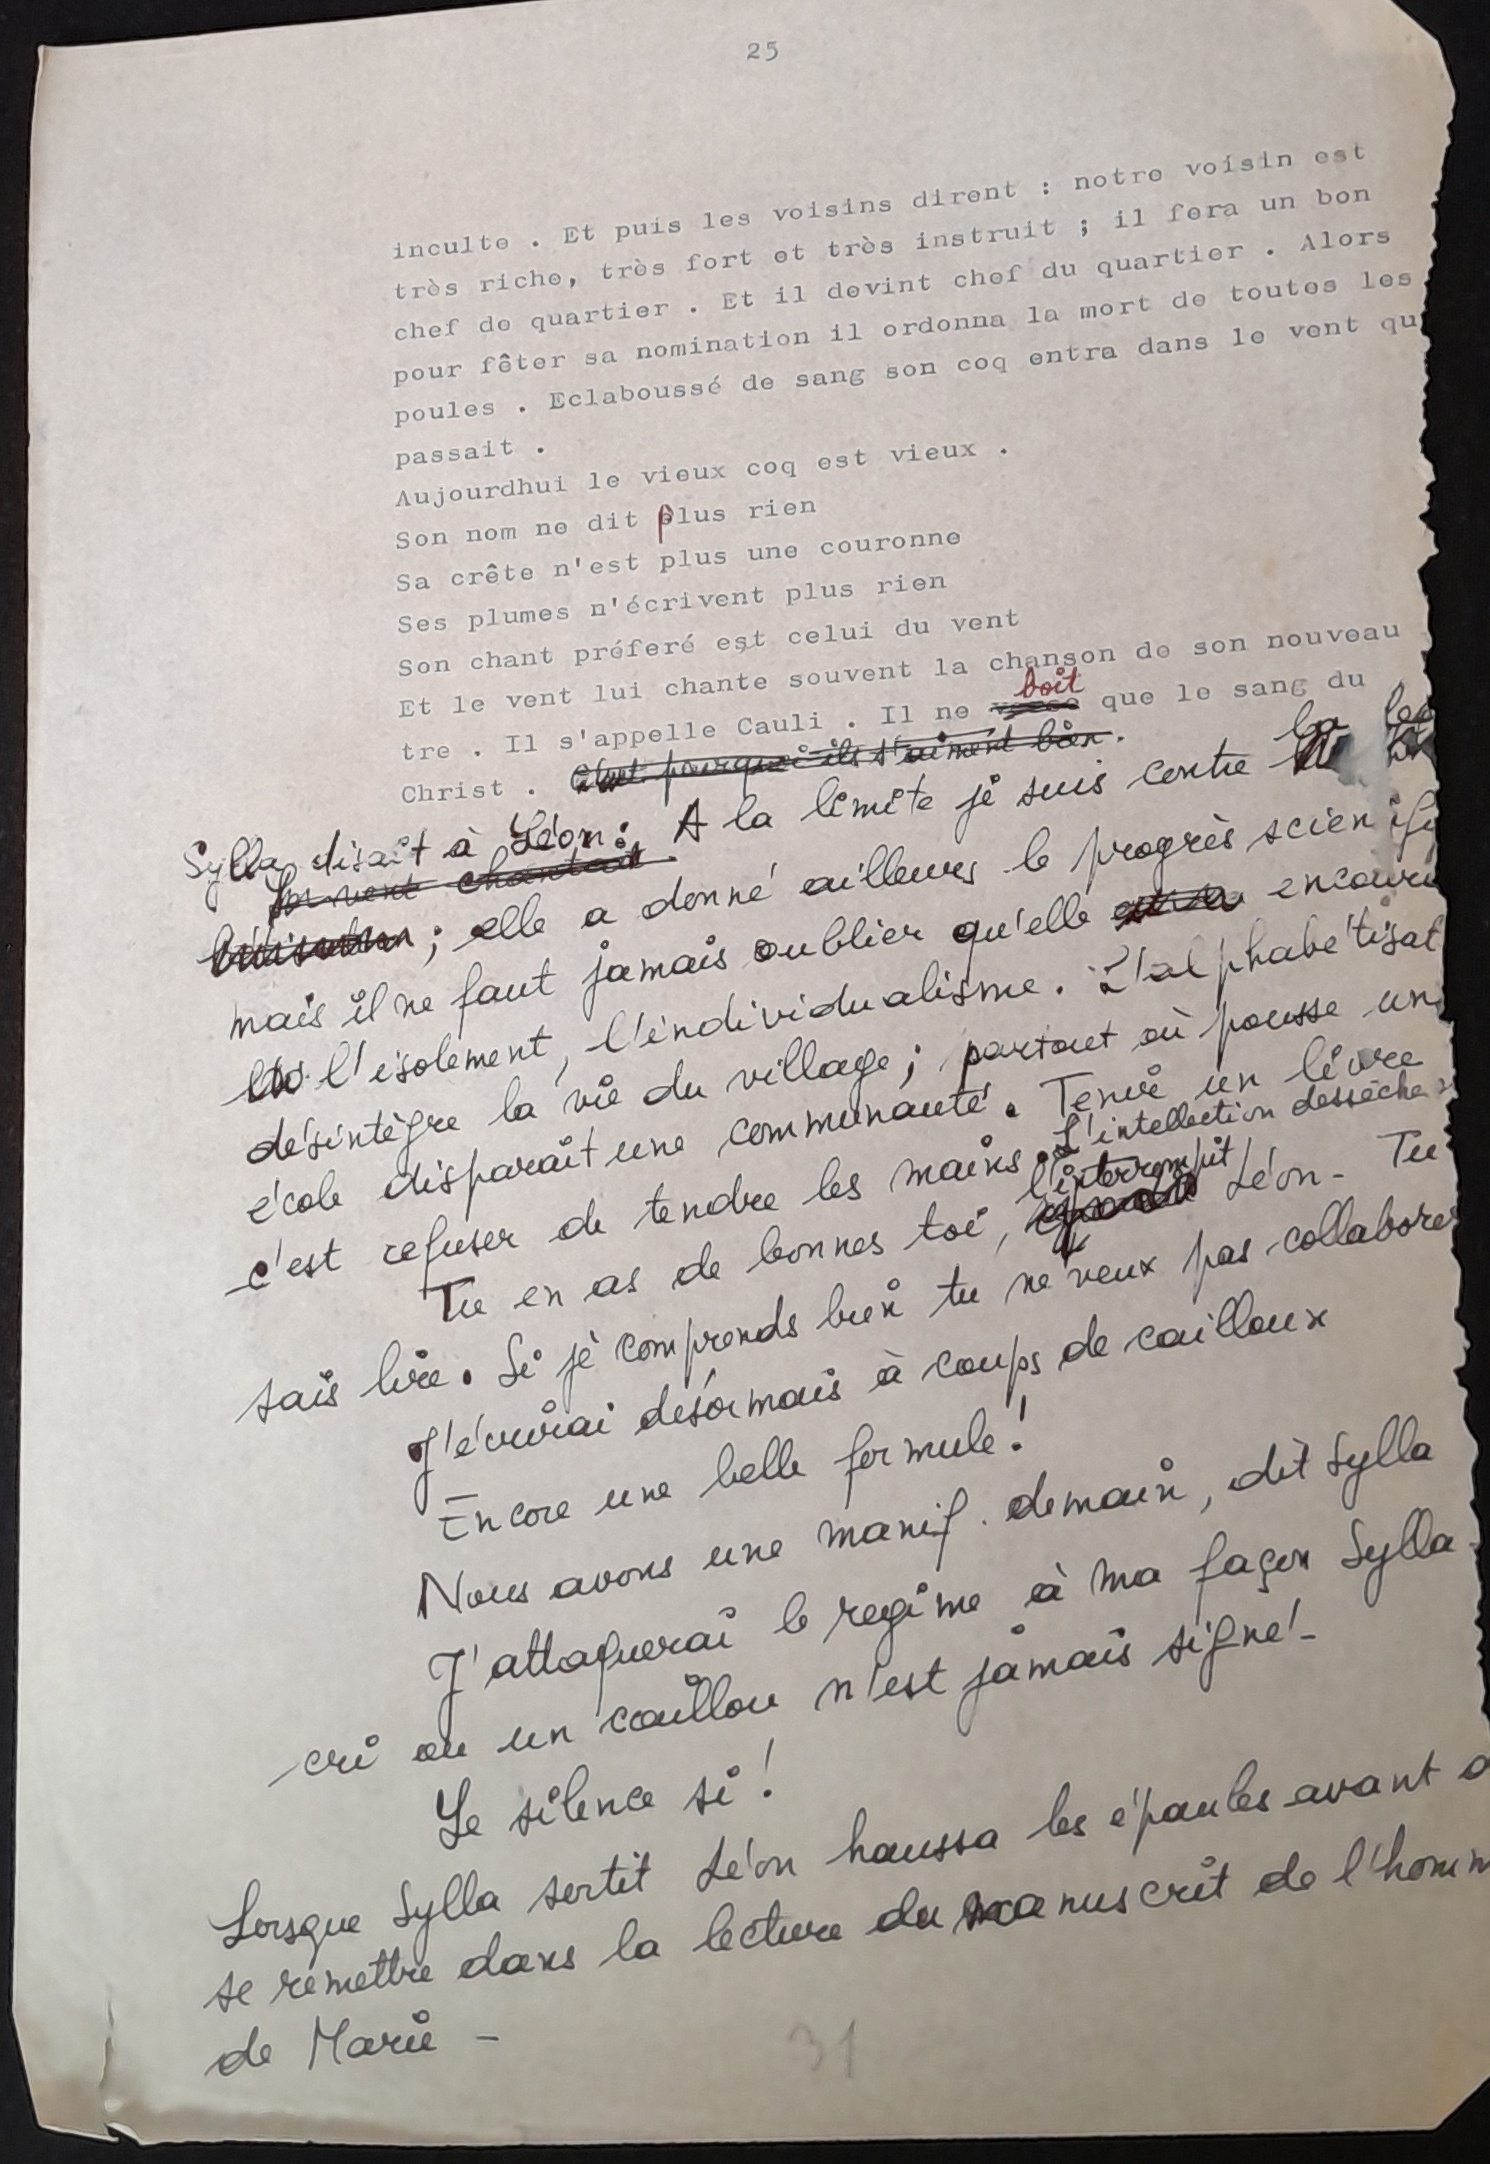 25
inculte . Et puis les voisins dirent : notre voisin est
très riche, très fort et très instruit ; il fera un bon
chef de quartier . Et il devint chef du quartier . Alors
pour fêter sa nomination il ordonna la mort de toutes les
poules . Eclaboussé de sang son coq entra dans le vent qu
passait .
Aujourdhui le vieux coq est vieux .
Son nom ne dit plus rien
Sa crête n'est plus une couronne
Ses plumes n'écrivent plus rien
Son chant préferé est celui du vent
Et le vent lui chante souvent la chanson de son nouveau
tre . Il s'appelle Cauli . Il ne boit que le sang du
Christ . C'est pourquoi ils s'aiment bien .
Sylla disait à Léon : A la limite je suis contre la
; elle a donné ailleurs le progrès scien
mais il ne faut jamais oublier qu'elle encour
l'isolement, l'individualisme. L'alphabétisat
désintègre la vie du village ; partout où pousse un
école disparaît une communauté. Tenir un livre
c'est refuser de tendre les mains. L'intellection dessèche
Tu en as de bonnes toi, l'interrompit Léon - Tu
sais lire. Si je comprends bien tu ne veux pas collaborer
J'écrirai désormais à coups de cailloux
Encore une belle formule !
Nous avons une manif. demain, dit Sylla
J'attaquerai le regime à ma façon Sylla -
cri ou un caillou n'est jamais signé -
Le silence si !
Lorsque Sylla sortit Léon haussa les épaules avant
se remettre dans la lecture du manuscrit de l'homm
de Marie -
31